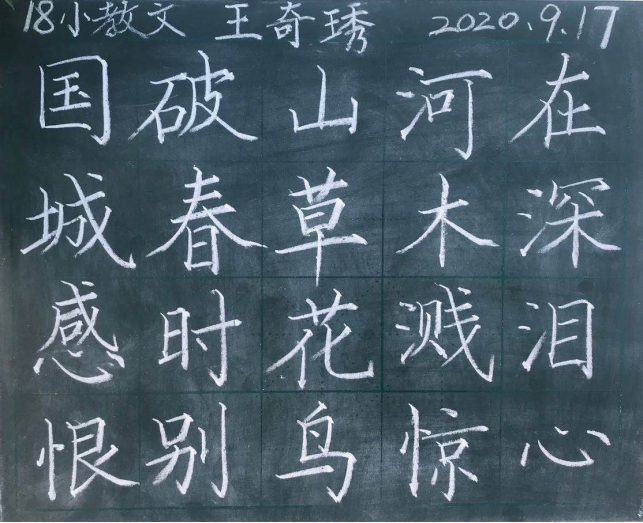 18小教文 王奇琇 2020.9.17
国破山河在
城春草木深
感时花溅泪
恨别鸟惊心